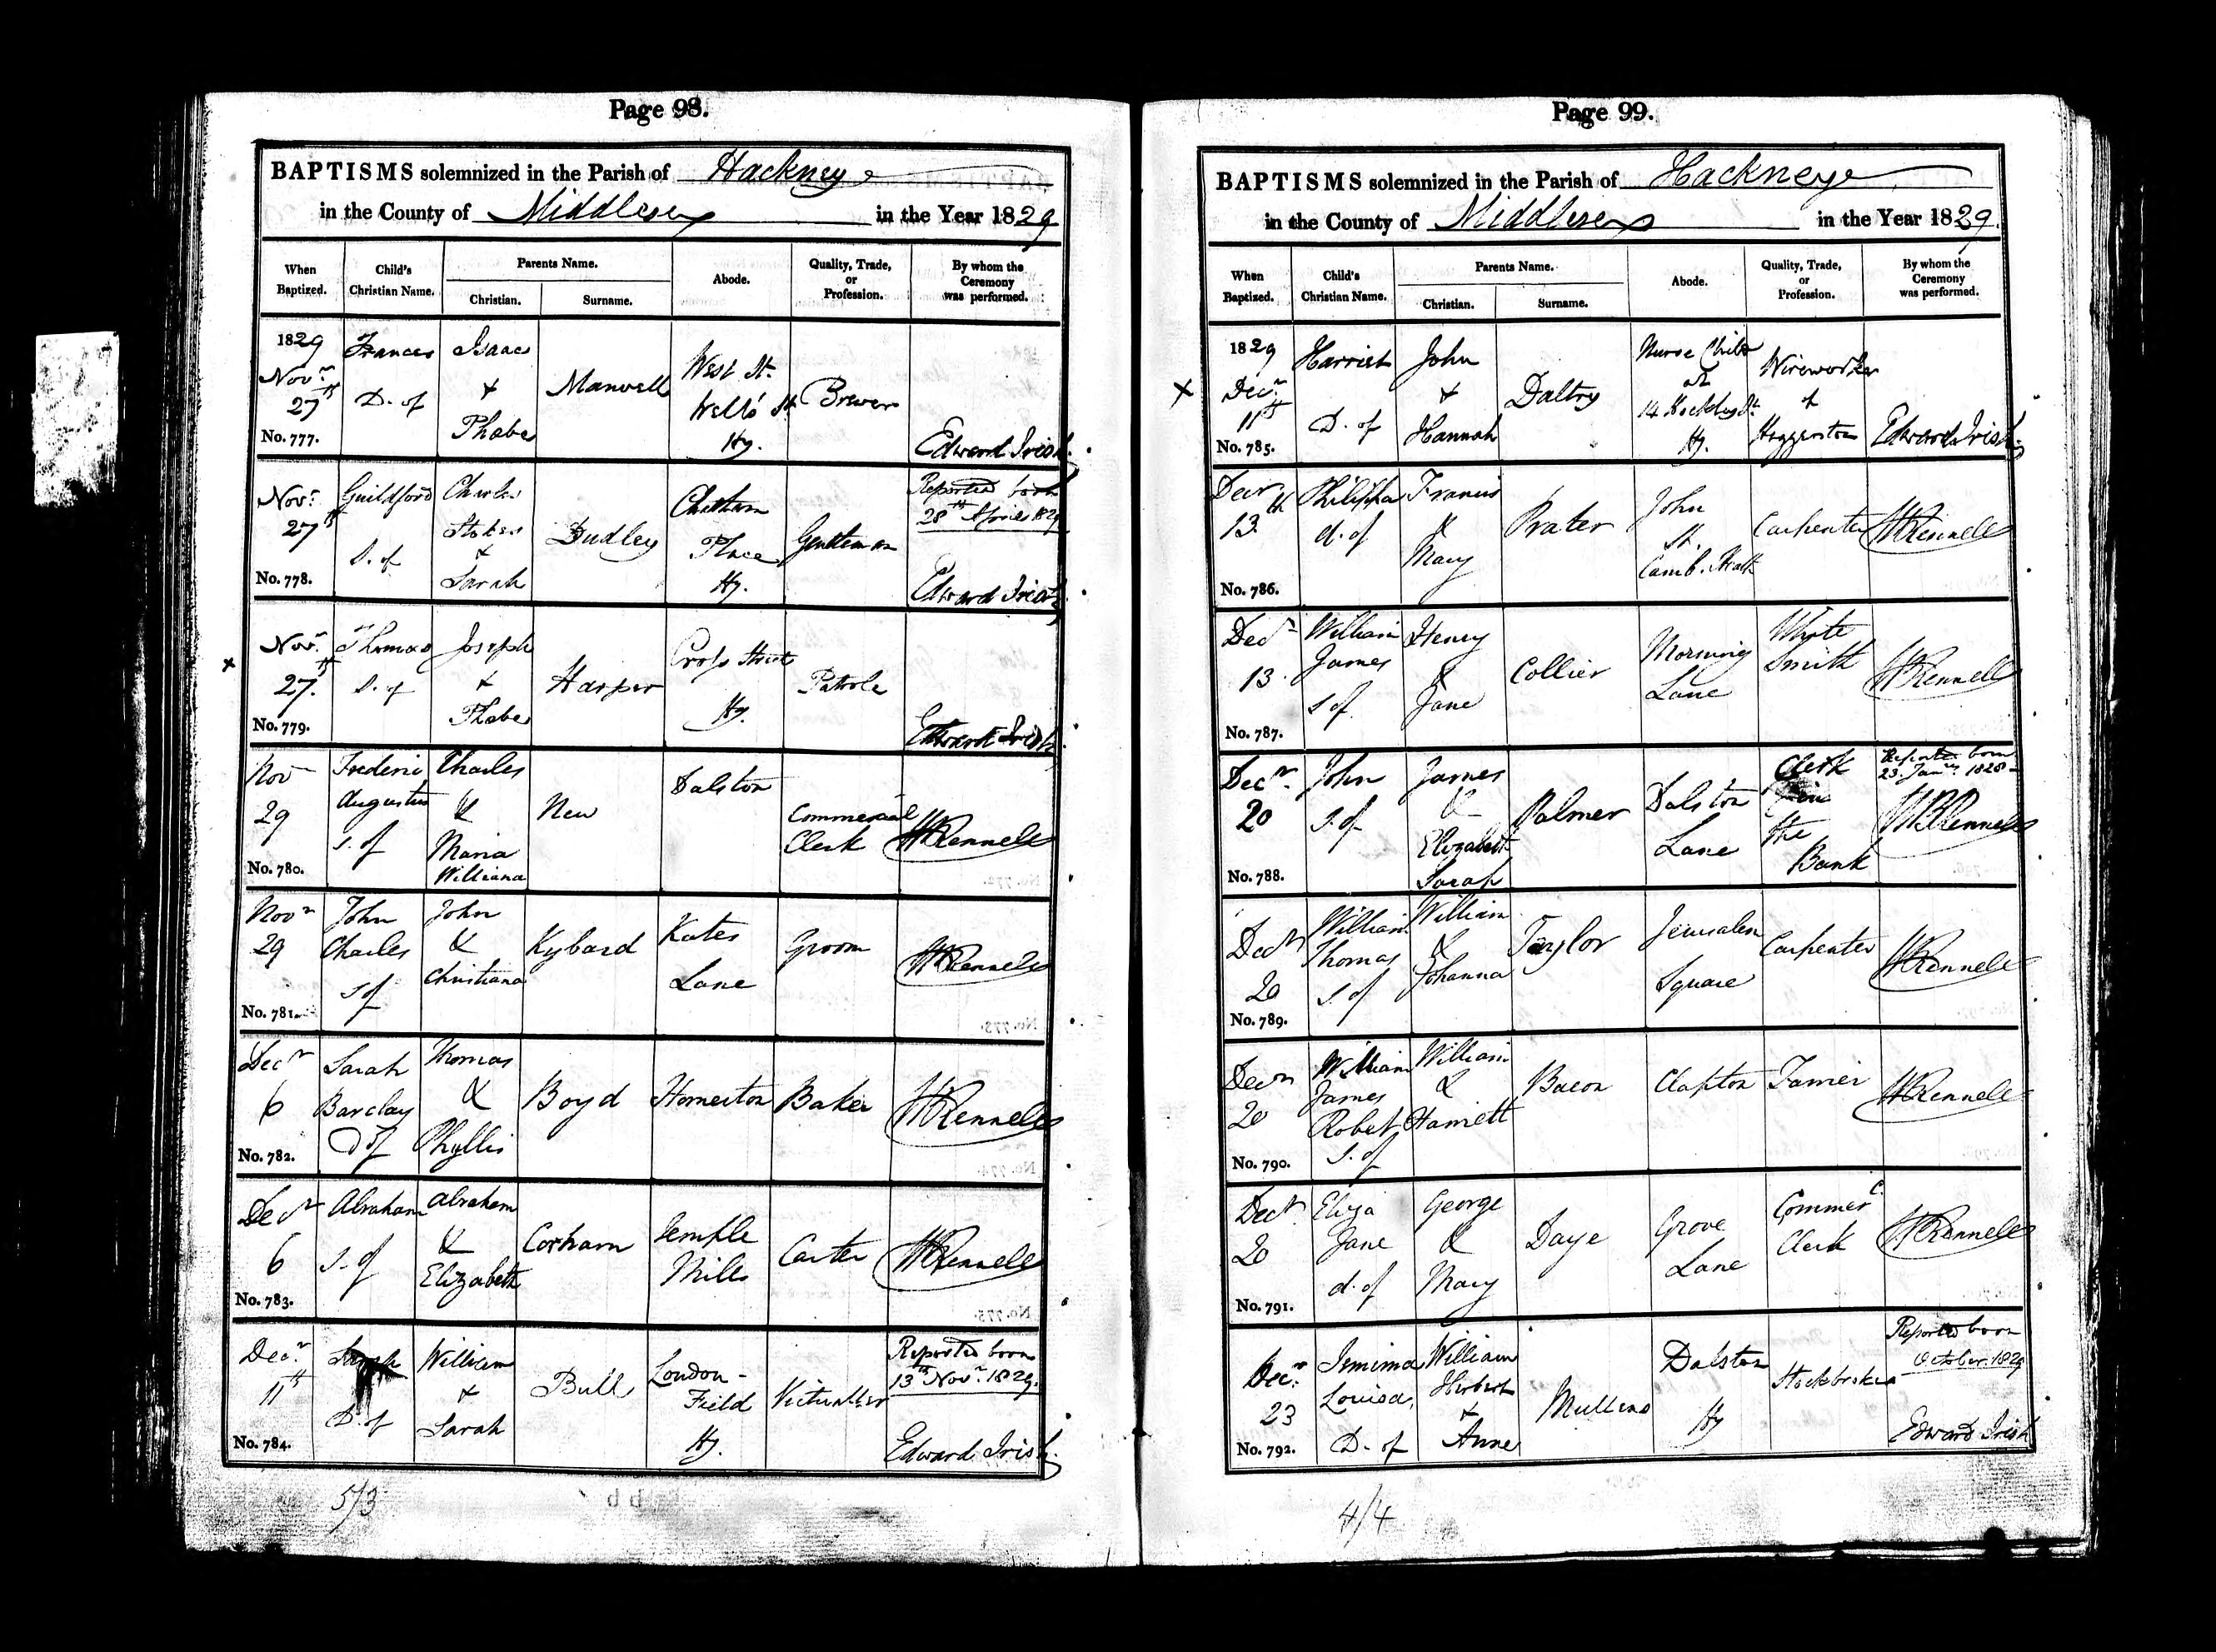 Page 98.
BAPTISMS solemnized in the Parish of Hackney
in the County of Middlesex in the Year 1829
When Baptized. Child's Christian Name. Parents Name. Christian. Surname. Abode. Quality, Trade, or Profession. By whom the Ceremony was performed.
1829 Novr. 27th No. 777. Frances D. of Isaac & Phœbe Manwell West St. Wells St. Hy. Brewer Edward Irish.
Novr. 27th No. 778. Guildford S. of Charles Stokes & Sarah Dudley Chatham Place Hy. Gentleman Reported born 28th April 1829 Edward Irish
x Novr. 27th No. 779. Thomas S. of Joseph & Phœbe Harper Cross Street Hy. Patrole Edward Irish.
Nov 29 No. 780. Frederic Augustus s. of Charles & Maria Williana New Dalston Commercial Clerk HRennell
Novr 29 No. 781. John Charles s of John & Christiana Kybard Kates Lane Groom HRennell
Decr 6 No. 782. Sarah Barclay D of Thomas & Phyllis Boyd Homerton Baker HRennell
Decr 6 No. 783. Abraham s. of Abraham & Elizabeth Corham Temple Mills Carter HRennell
Decr. 11th No. 784. Sarah D. of William & Sarah Bull London Field Hy. Victualler Reported born 13th Novr. 1829. Edward Irish.
5/3
Page 99.
BAPTISMS solemnized in the Parish of Hackney
in the County of Middlesex in the Year 1829.
When Baptized. Child's Christian Name. Parents Name. Christian. Surname. Abode. Quality, Trade, or Profession. By whom the Ceremony was performed.
x 1829 Decr. 11th No. 785. Harriet D. of John & Hannah Daltry Nurse Child at 14 St. Hy. Wireworker of Haggerston Edward Irish.
Decr 13th No. 786. Philippa d. of Francis & Mary Prater John St. Camb. Heath Carpenter HRennell
Decr 13. No. 787. William James s of Henry & Jane Collier Morning Lane White Smith HRennell
Decr. 20 No. 788. John s. of James & Elizabeth Sarah Palmer Dalston Lane Clerk in the Bank Reported born 23. Jany. 1828 HRennell
Decr 20 No. 789. William Thomas s. of William & Johanna Taylor Jerusalem Square Carpenter HRennell
Decr 20 No. 790. William James Robert s. of William & Harriett Bacon Clapton Farrier HRennell
Decr. 20 No. 791. Eliza Jane d. of George & Mary Daye Grove Lane Commerc. Clerk HRennell
Decr. 23 No. 792. Jemima Louisa, D. of William Herbert & Anne Mullens Dalston Hy Stockbroker Reported born October 1829 Edward Irish
4/4